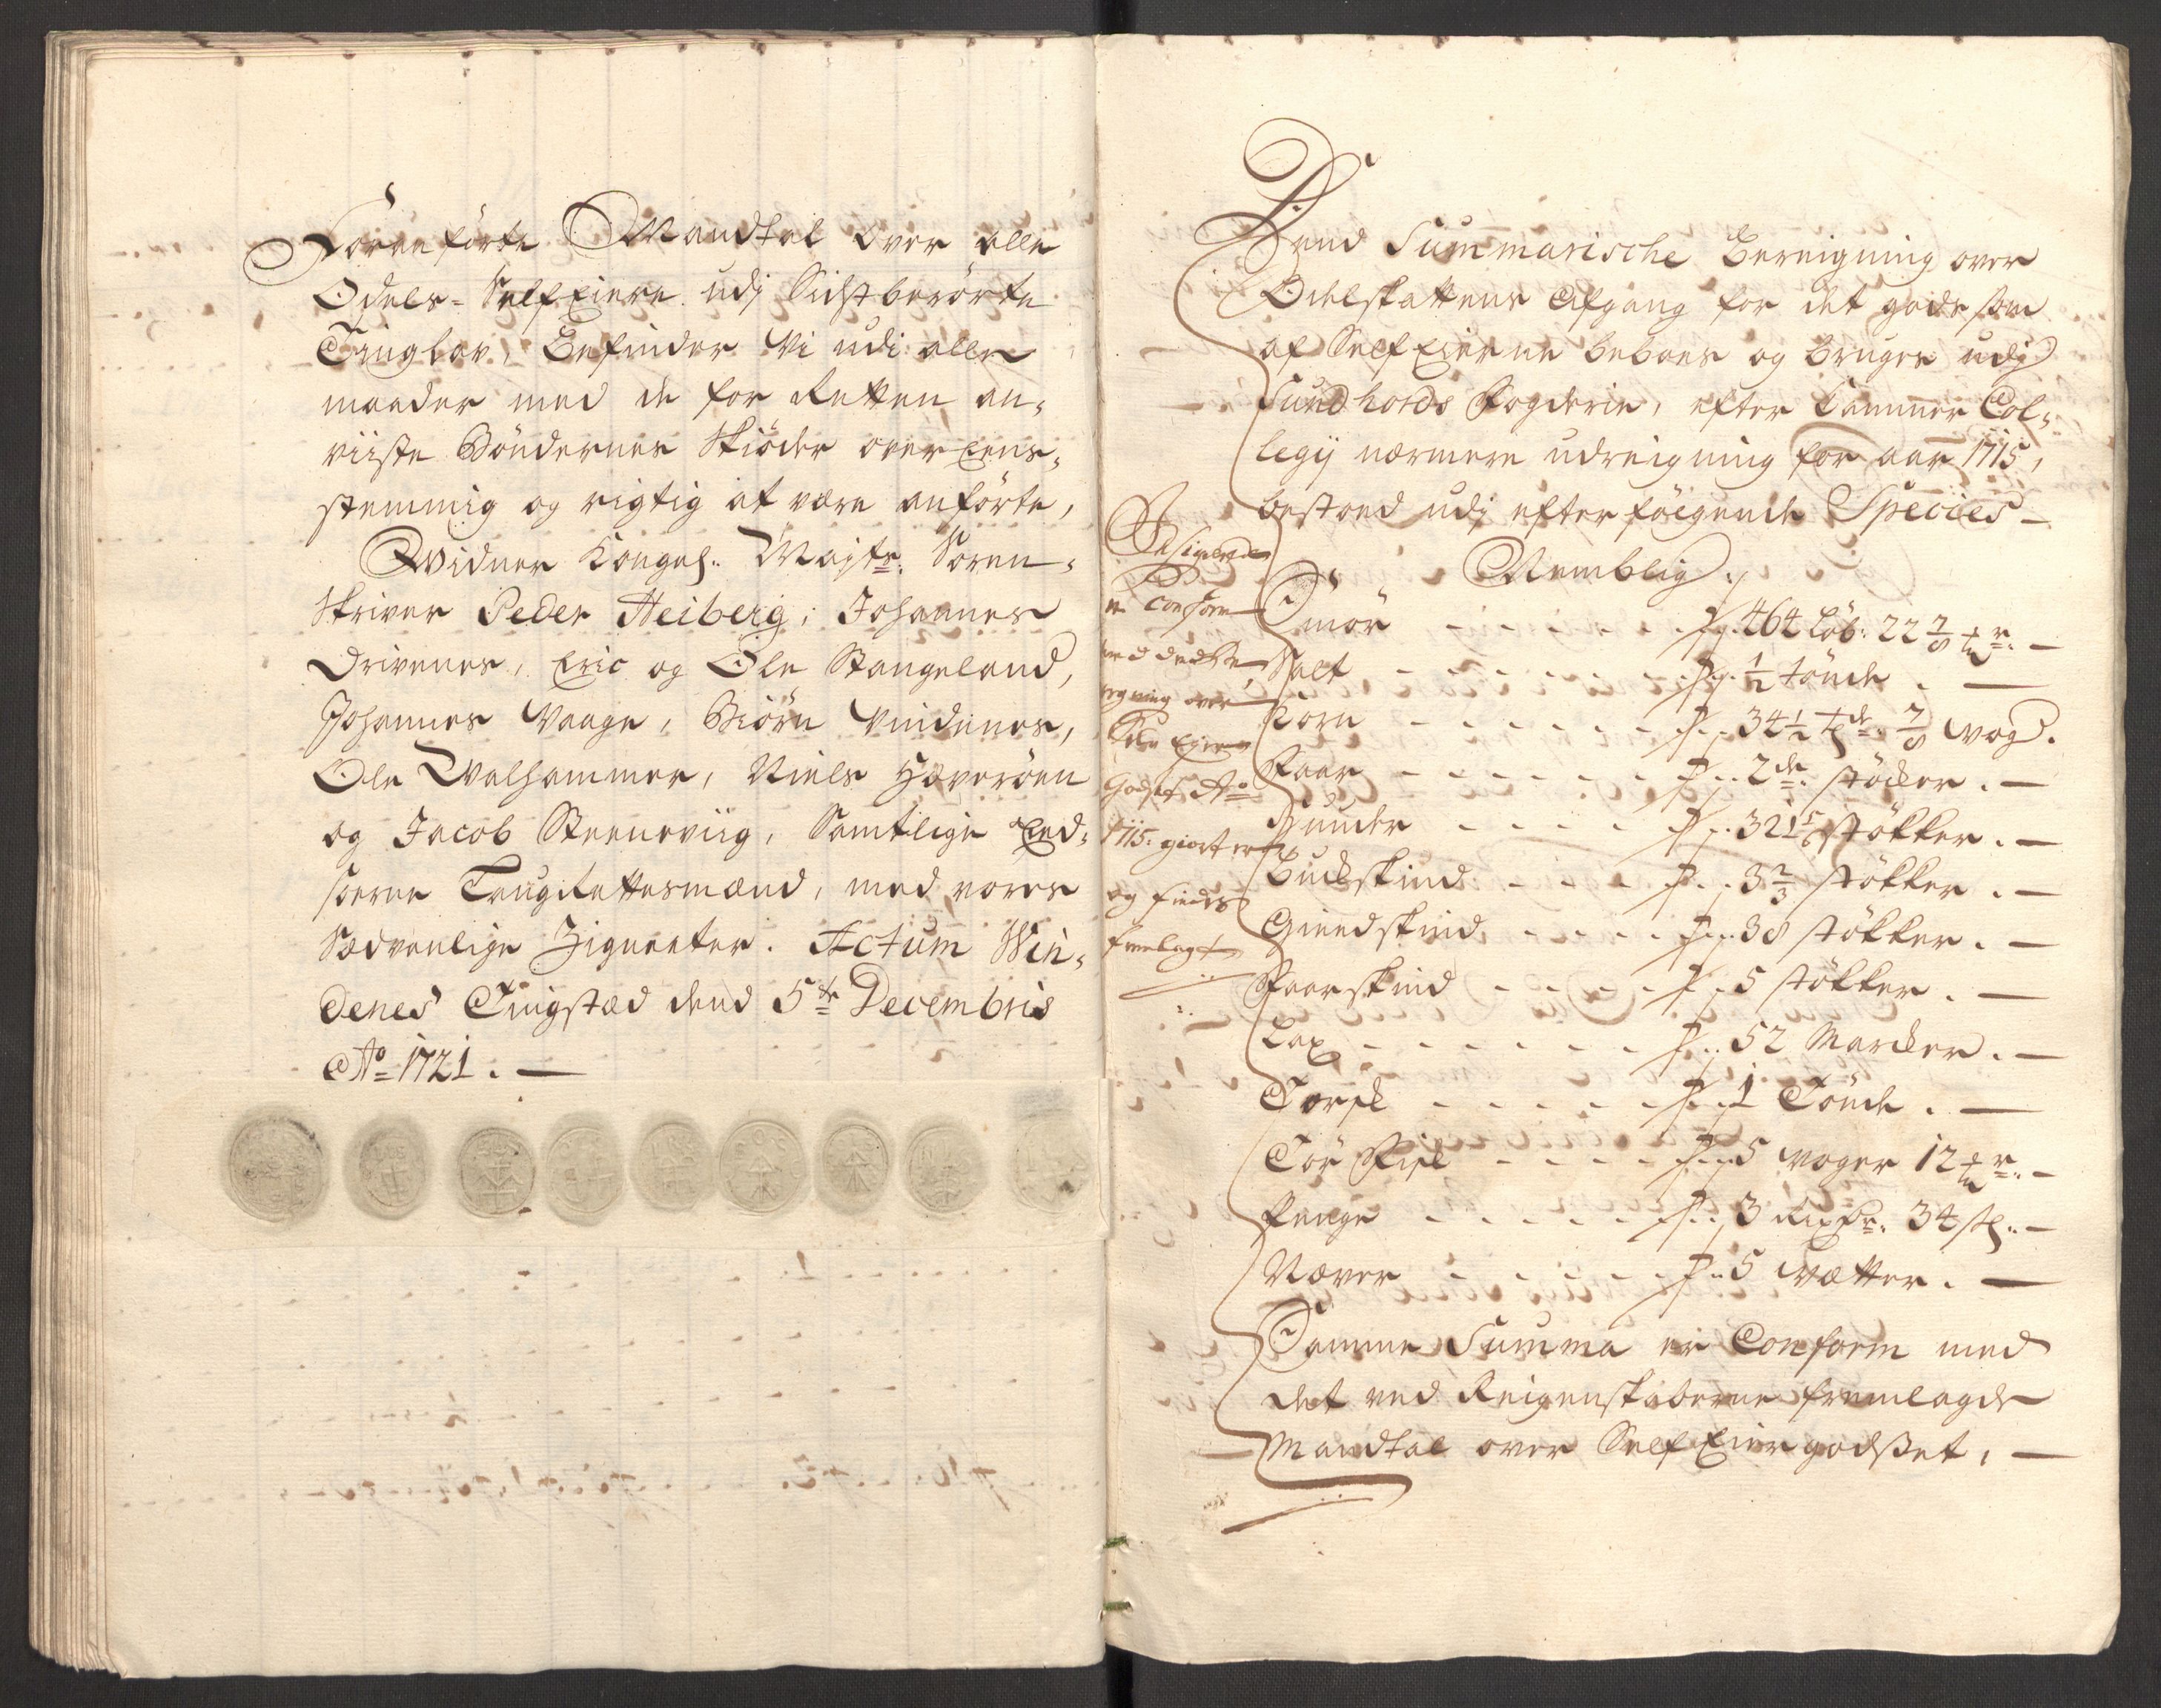 Foranførte Mandtal over alle
Odels-Self Eiere udj Sidstberørte
Tinglav, Befinder Vi udi alle
maader med de for Retten an-
viiste Bøndernes Skiøder over Eens-
stemmig og rigtig at være anførte,
Widner Kongel. Mayts. Soren-
skriver Peder Heiberg, Johannes
Drivenes, Eric og Ole Stangeland,
Johannes Vaage, Biørn Vindenes,
Ole Walhammer, Niels Haverøen
og Jacob Steensviig, Samtlige Eed-
soerne Laugrettesmænd, med vores
Sædvanlige Zigneter. Actum Win-
denes Tingstæd dend 5te Decembris
Ao 1721.
Dend Summarische Bereigning over
Odelskattens Afgang for det gods som
af Self Eierne beboes og bruges udj
Sundhords Fogderie, efter Cammer Col-
legij nærmere udreigning for aar 1715,
bestoed udj efterføigende Species
Nemblig
Smør 464 Løb: 22 7/8 mr.
Salt 1/2 tønde
Korn 34 1/2 tdr 7/8 vog.
Faar 2de støcker.
Huuder 32 15/16 støkker.
Buckskind 3 2/3 støkker.
Giedskind 38 støkker.
Faarskind 5 støkker.
Lax 52 Marcker.
Torsk 1 Tønde.
Tør Fisk 5 woger 12 mr.
Penge 3 rixdr. 34 sk.
Næver 5 Vætter.
Samme Summa er Conform med
det ved Reigenskaberne fremlagde
Mandtal over Self Eiergodset,
Designeres
er Conform
med dend Be-
regning over
Self Eier
Godset Ao
1715. giort er
og findes
fremlagt